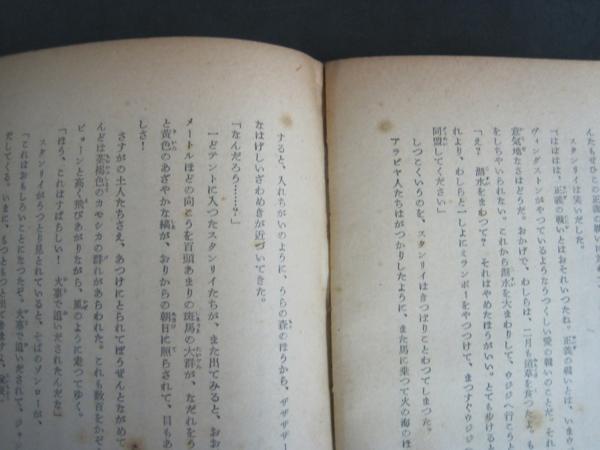 んたもぜひこの正義の戦いに加
スタンリイは笑いだした。
「ははは、正義の戦いとはおそれいつたね。正義の戦いとは、いまウ
ヴィングストンがやつているようなうつくしい愛の戦いのことだ。それ
意気地なさはどうだ。おかげで、わしらは、二月も道草を食つたよ。も
をしちやいられない。これから湖水を大まわりして、ウジジへ行こうと
「え？　湖水をまわつて？　それはやめたほうがいい。とても歩ける
れより、わしらと一しよにミランボーをやつつけて、まつすぐウジジ
同盟してください」
しつこくいうのを、スタンリイはきつぱりことわつてしまつた。
アラビヤ人たちはがつかりしたように、また馬に乗つて火の海のほ
すると、入れちがいのように、うらの森のほうから、ザザザザー
なはげしいざわめきが近づいてきた。
「なんだろう……？」
一どテントに入つたスタンリイたちが、また出てみると、おお
メートルほどの向こうを百頭あまりの斑馬の大群が、なだれをう
と黄色のあざやかな縞が、おりからの朝日に照らされて、目もあ
しさ！
さすがの土人たちさえ、あつけにとられてぼうぜんとながめて
んどは茶褐色のカモシカの群れがあらわれた。これも数百をかぞ
ピョーンと高く飛びあがりながら、風のように走つてゆく。
「ほう、これはすばらしい！　火事で追いだされたんだな」
スタンリイがうつとり見とれていると、そばのゾンローが、
「これはおもしろいことになつたぞ。火事で追いだされて、ジャン
だしてくる。いまに、もつともつと見てきますよ。